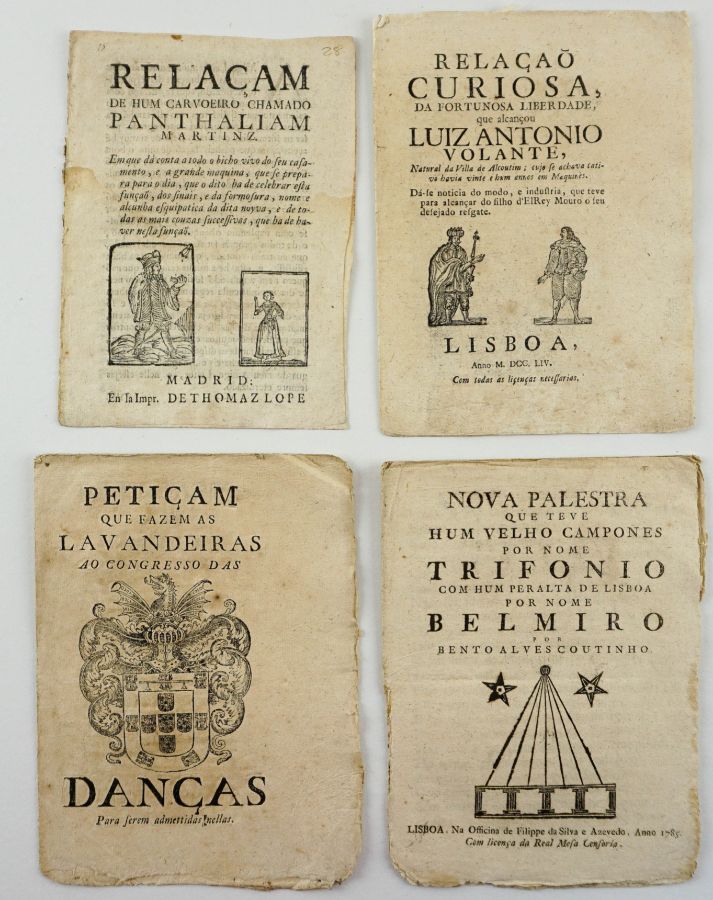 28
RELAÇAM
DE HUM CARVOEIRO CHAMADO
PANTHALIAM
MARTINZ.
Em que dá conta a todo o bicho vivo do seu casa-
mento, e a grande maquina, que se prepa-
ra para o dia, que o dito ha de celebrar esta
funçaõ, dos sinais, e da formosura, nome e
alcunha esquipatica da dita noyva, e de to-
das as mais couzas successivas, que ha de ha-
ver nesta funçaõ.
MADRID:
En la Impr. DE THOMAZ LOPE
RELAÇAÕ
CURIOSA,
DA FORTUNOSA LIBERDADE,
que alcançou
LUIZ ANTONIO
VOLANTE,
Natural da Villa de Alcoutim; cujo se achava cati-
vo havia vinte e hum annos em Maquines.
Dá-se noticia do modo, e industria, que teve
para alcançar do filho d'ElRey Mouro o seu
desejado resgate.
LISBOA,
Anno M. DCC. LIV.
Com todas as licenças necessarias.
PETIÇAM
QUE FAZEM AS
LAVANDEIRAS
AO CONGRESSO DAS
DANÇAS
Para serem admettidas nellas.
NOVA PALESTRA
QUE TEVE
HUM VELHO CAMPONES
POR NOME
TRIFONIO
COM HUM PERALTA DE LISBOA
POR NOME
BELMIRO
POR
BENTO ALVES COUTINHO.
LISBOA. Na Officina de Filippe da Silva e Azevedo. Anno 1785.
Com licença da Real Mesa Censoria.